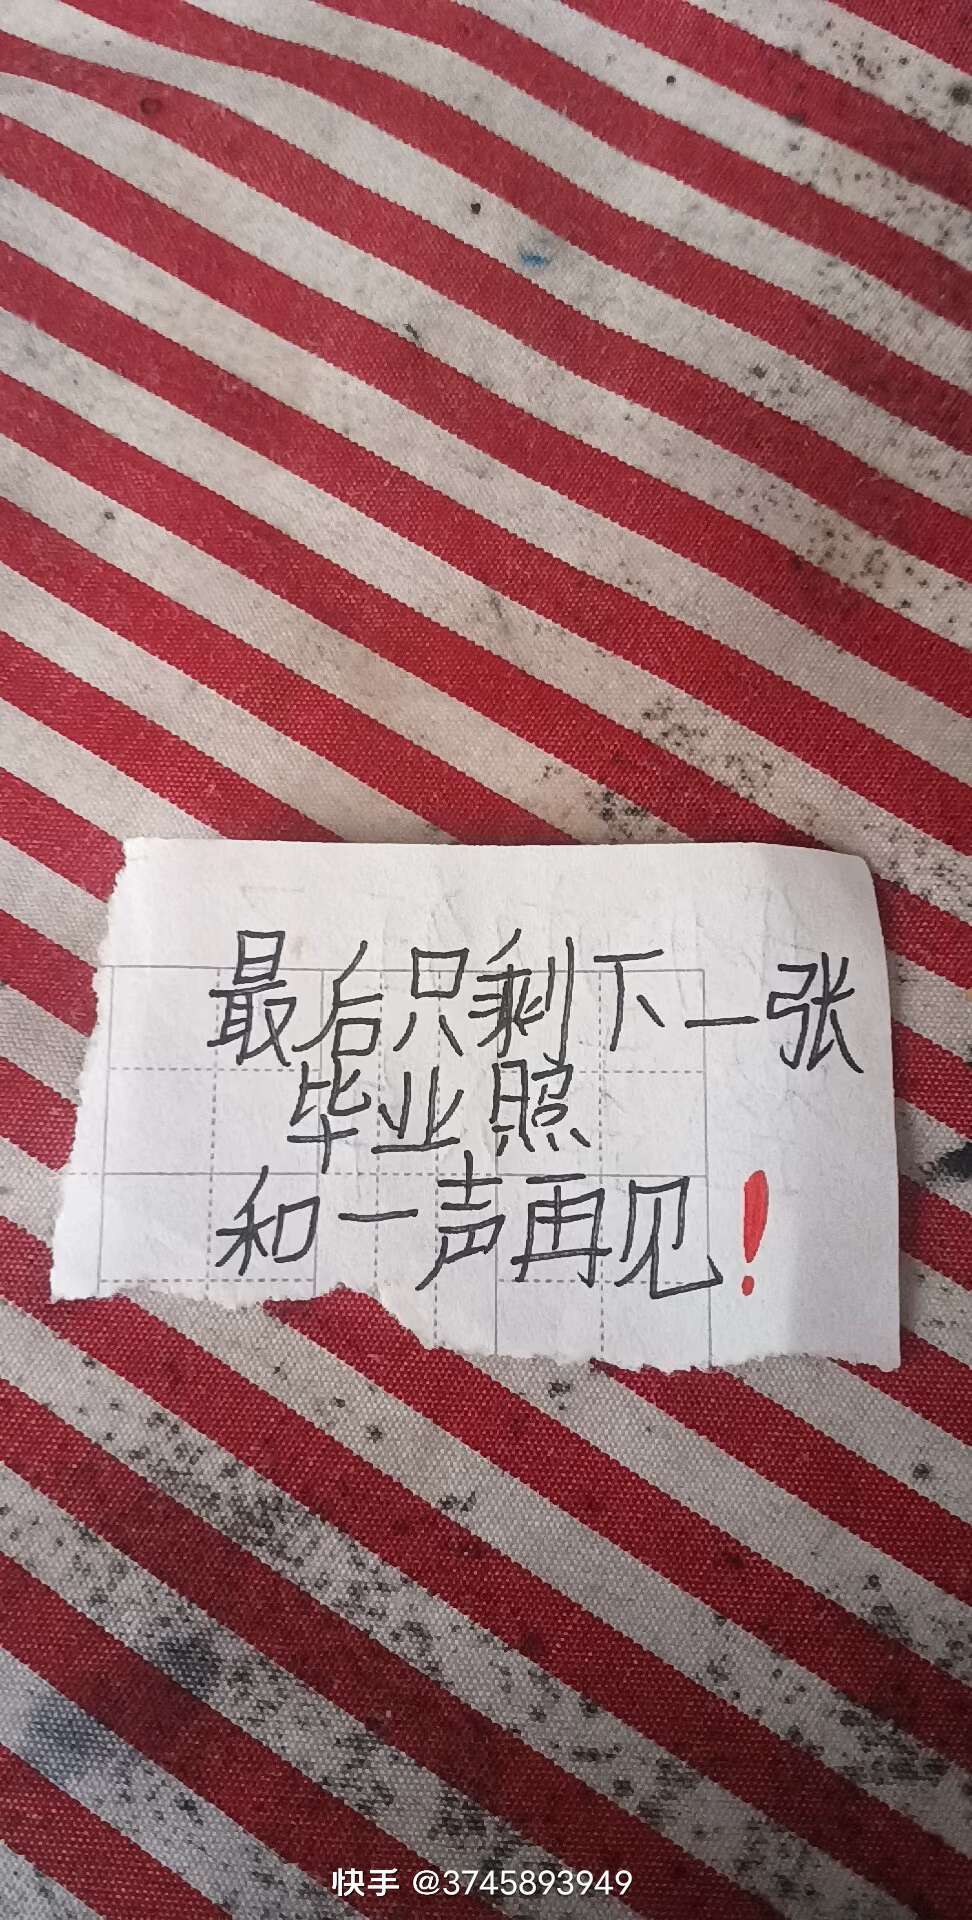 最后只剩下一张
毕业照
和一声再见！
快手 @3745893949